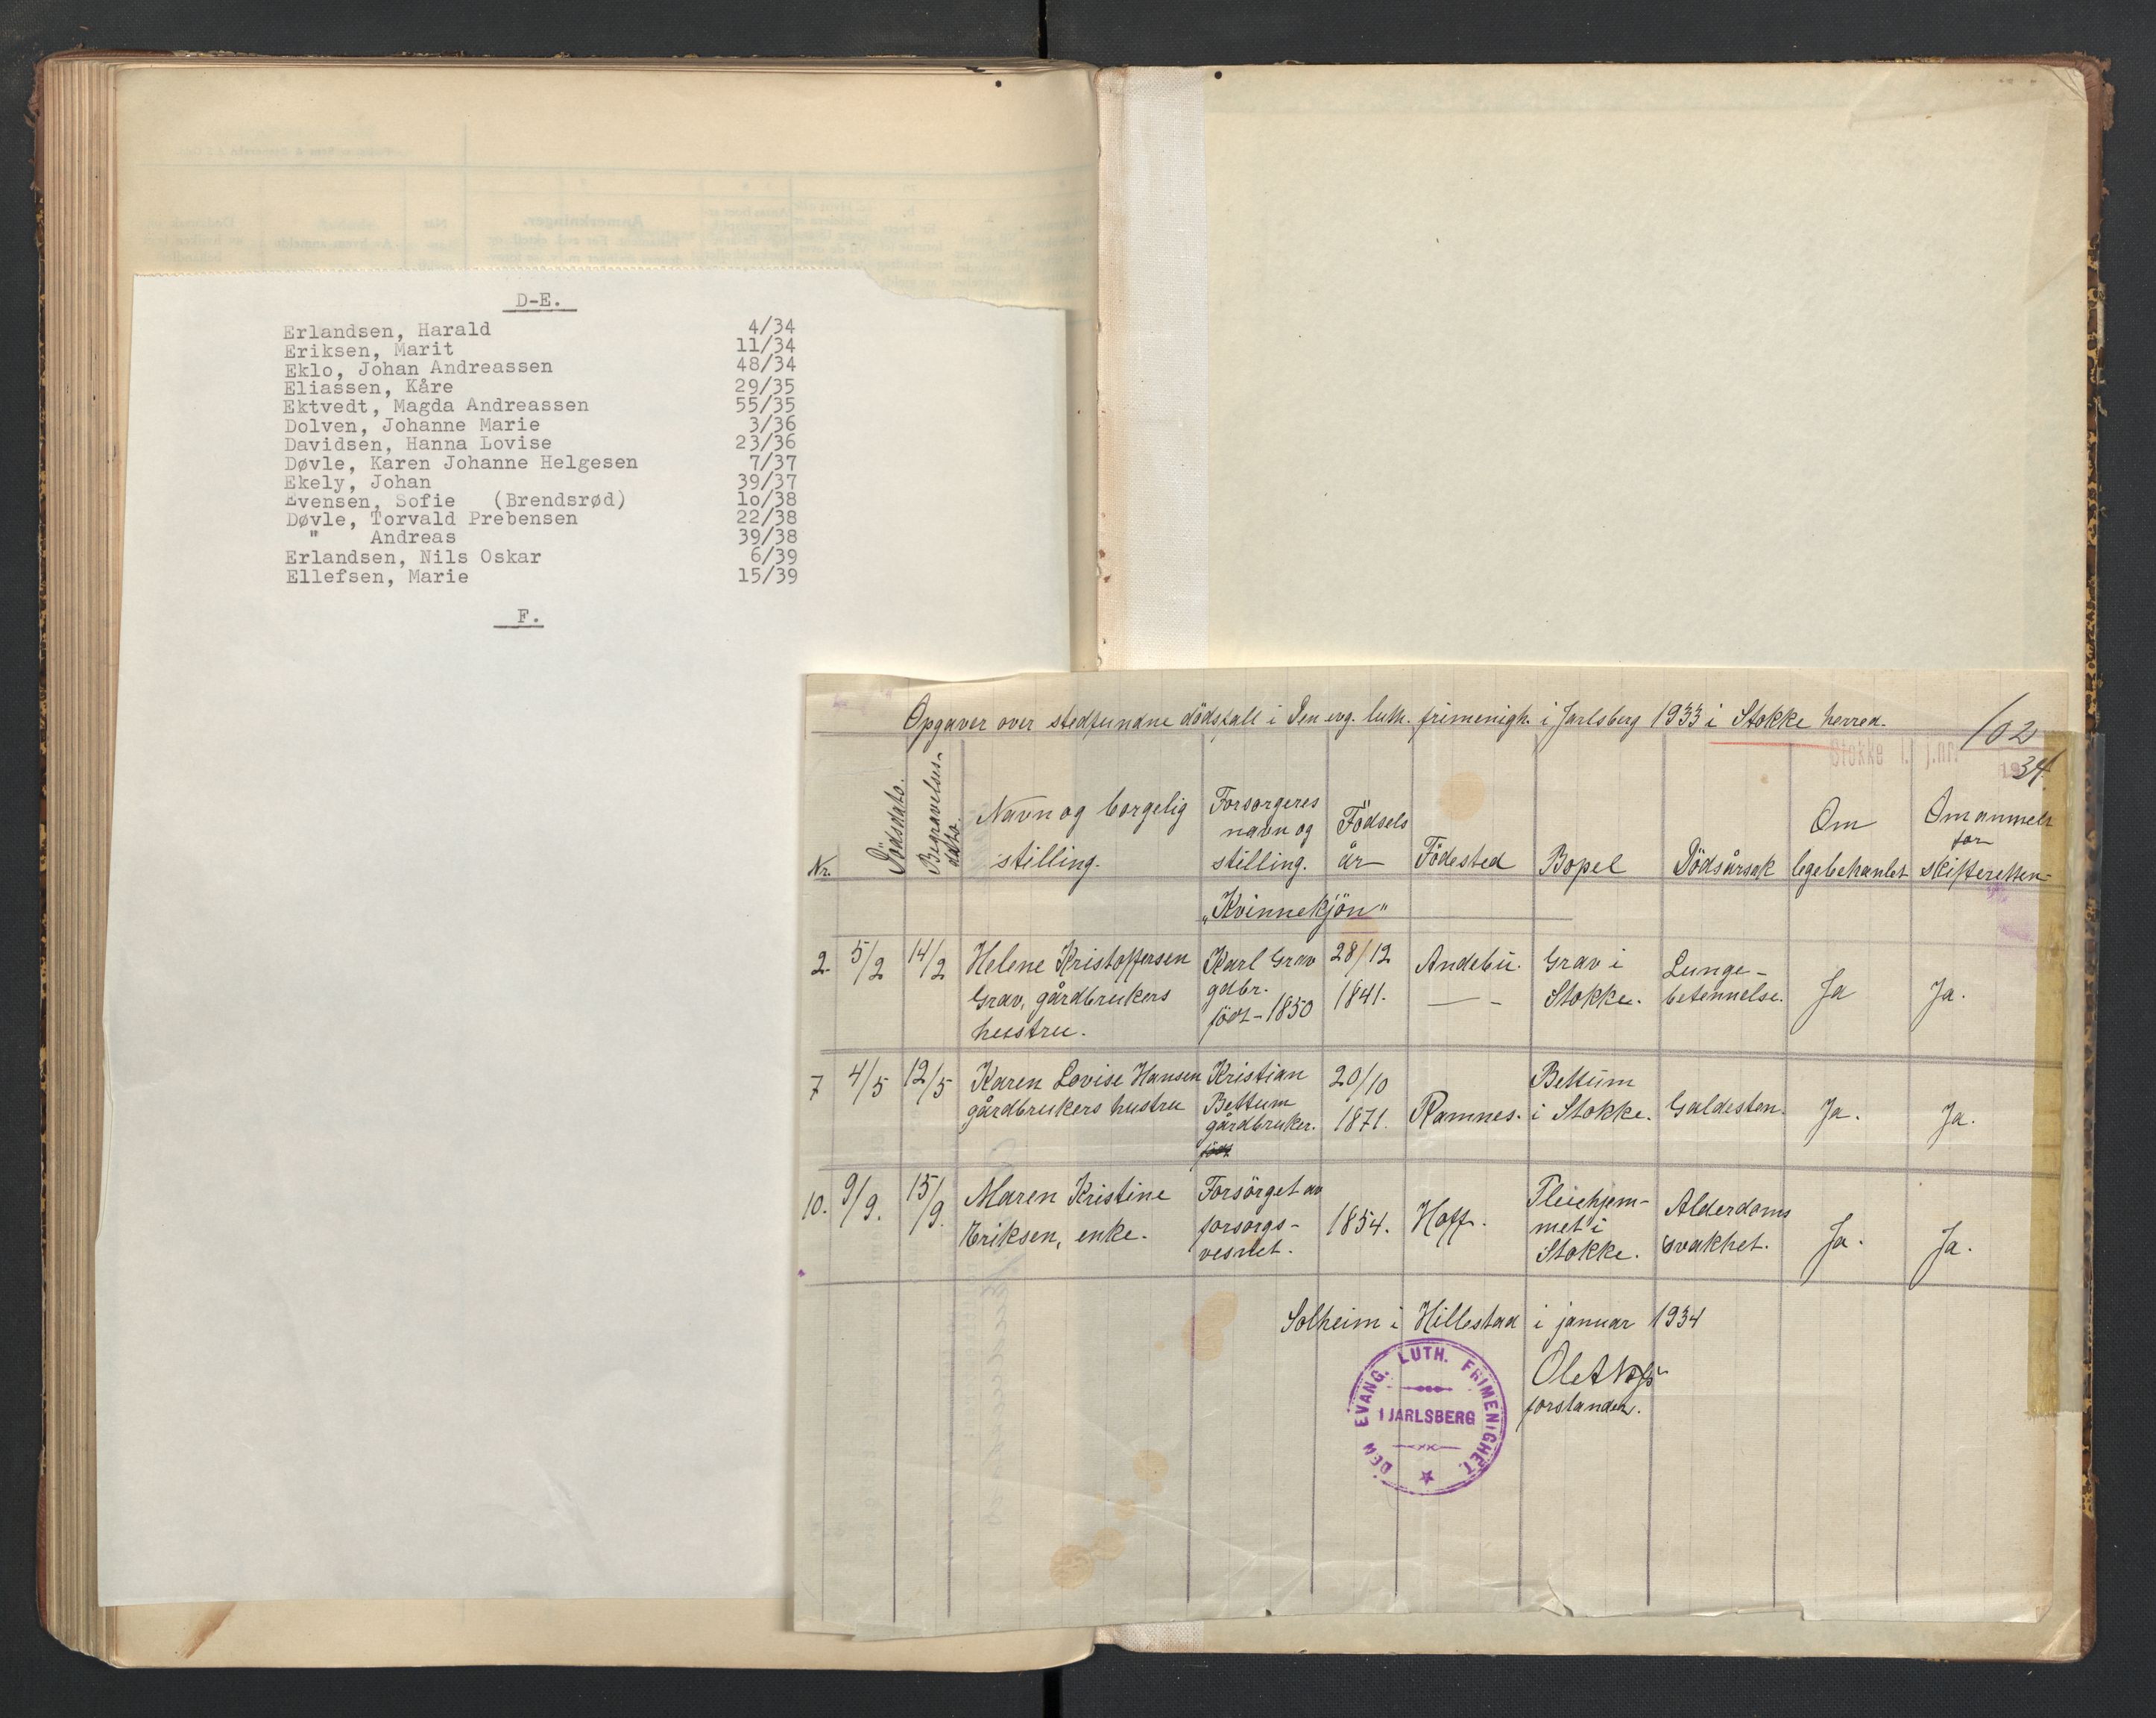 D-E.
Erlandsen, Harald 4/34
Eriksen, Marit 11/34
Eklo, Johan Andreassen 48/34
Eliassen, Kåre 29/35
Ektvedt, Magda Andreassen 55/35
Dolven, Johanne Marie 3/36
Davidsen, Hanna Lovise 23/36
Døvle, Karen Johanne Helgesen 7/37
Ekely, Johan 39/37
Evensen, Sofie (Brendsrød) 1o/38
Døvle, Torvald Prebensen 22/38
" Andreas 39/38
Erlandsen, Nils Oskar 6/39
Ellefsen, Marie 15/39
F.
Opgaver over stedfundne dödsfall i Den evg. luth. frimenigh. i Jarlsberg 1933 i Stokke herred.
102
Stokke j.nr.
1934
Nr.
Dödsdato.
Begravelses-
dato.
Navn og borgelig
stilling.
Forsorgeres
navn og
stilling.
Födsels
år
Födested
Bopel
Dödsårsak
Om
legebehanlet
Om anmelt
for
skifteretten
„Kvinnekjön"
2 5/2 14/2
Helene Kristoffersen
Grav, gårdbrukers
hustru.
Karl Grav
gdbr.
födt - 1850
28/12
1841.
Andebu.
— -
Grav i
Stokke.
Lunge-
betennelse.
Ja
Ja.
7 4/5 12/5
Karen Lovise Hansen
gårdbrukers hustru
Kristian
Bettum
gårdbruker.
födt
20/10
1871.
Ramnes.
Bettum
i Stokke.
Galdesten.
Ja.
Ja.
10. 9/9. 15/9.
Maren Kristine
Eriksen, enke.
Forsörget av
forsorgs-
vesnet.
1854.
Hoff.
Pleiehjem-
met i
Stokke.
Alderdoms
svakhet.
Ja.
Ja.
Solheim i Hillestad i januar 1934
forstander.
DEN EVANG. LUTH. FRIMENIGHET.
I JARLSBERG